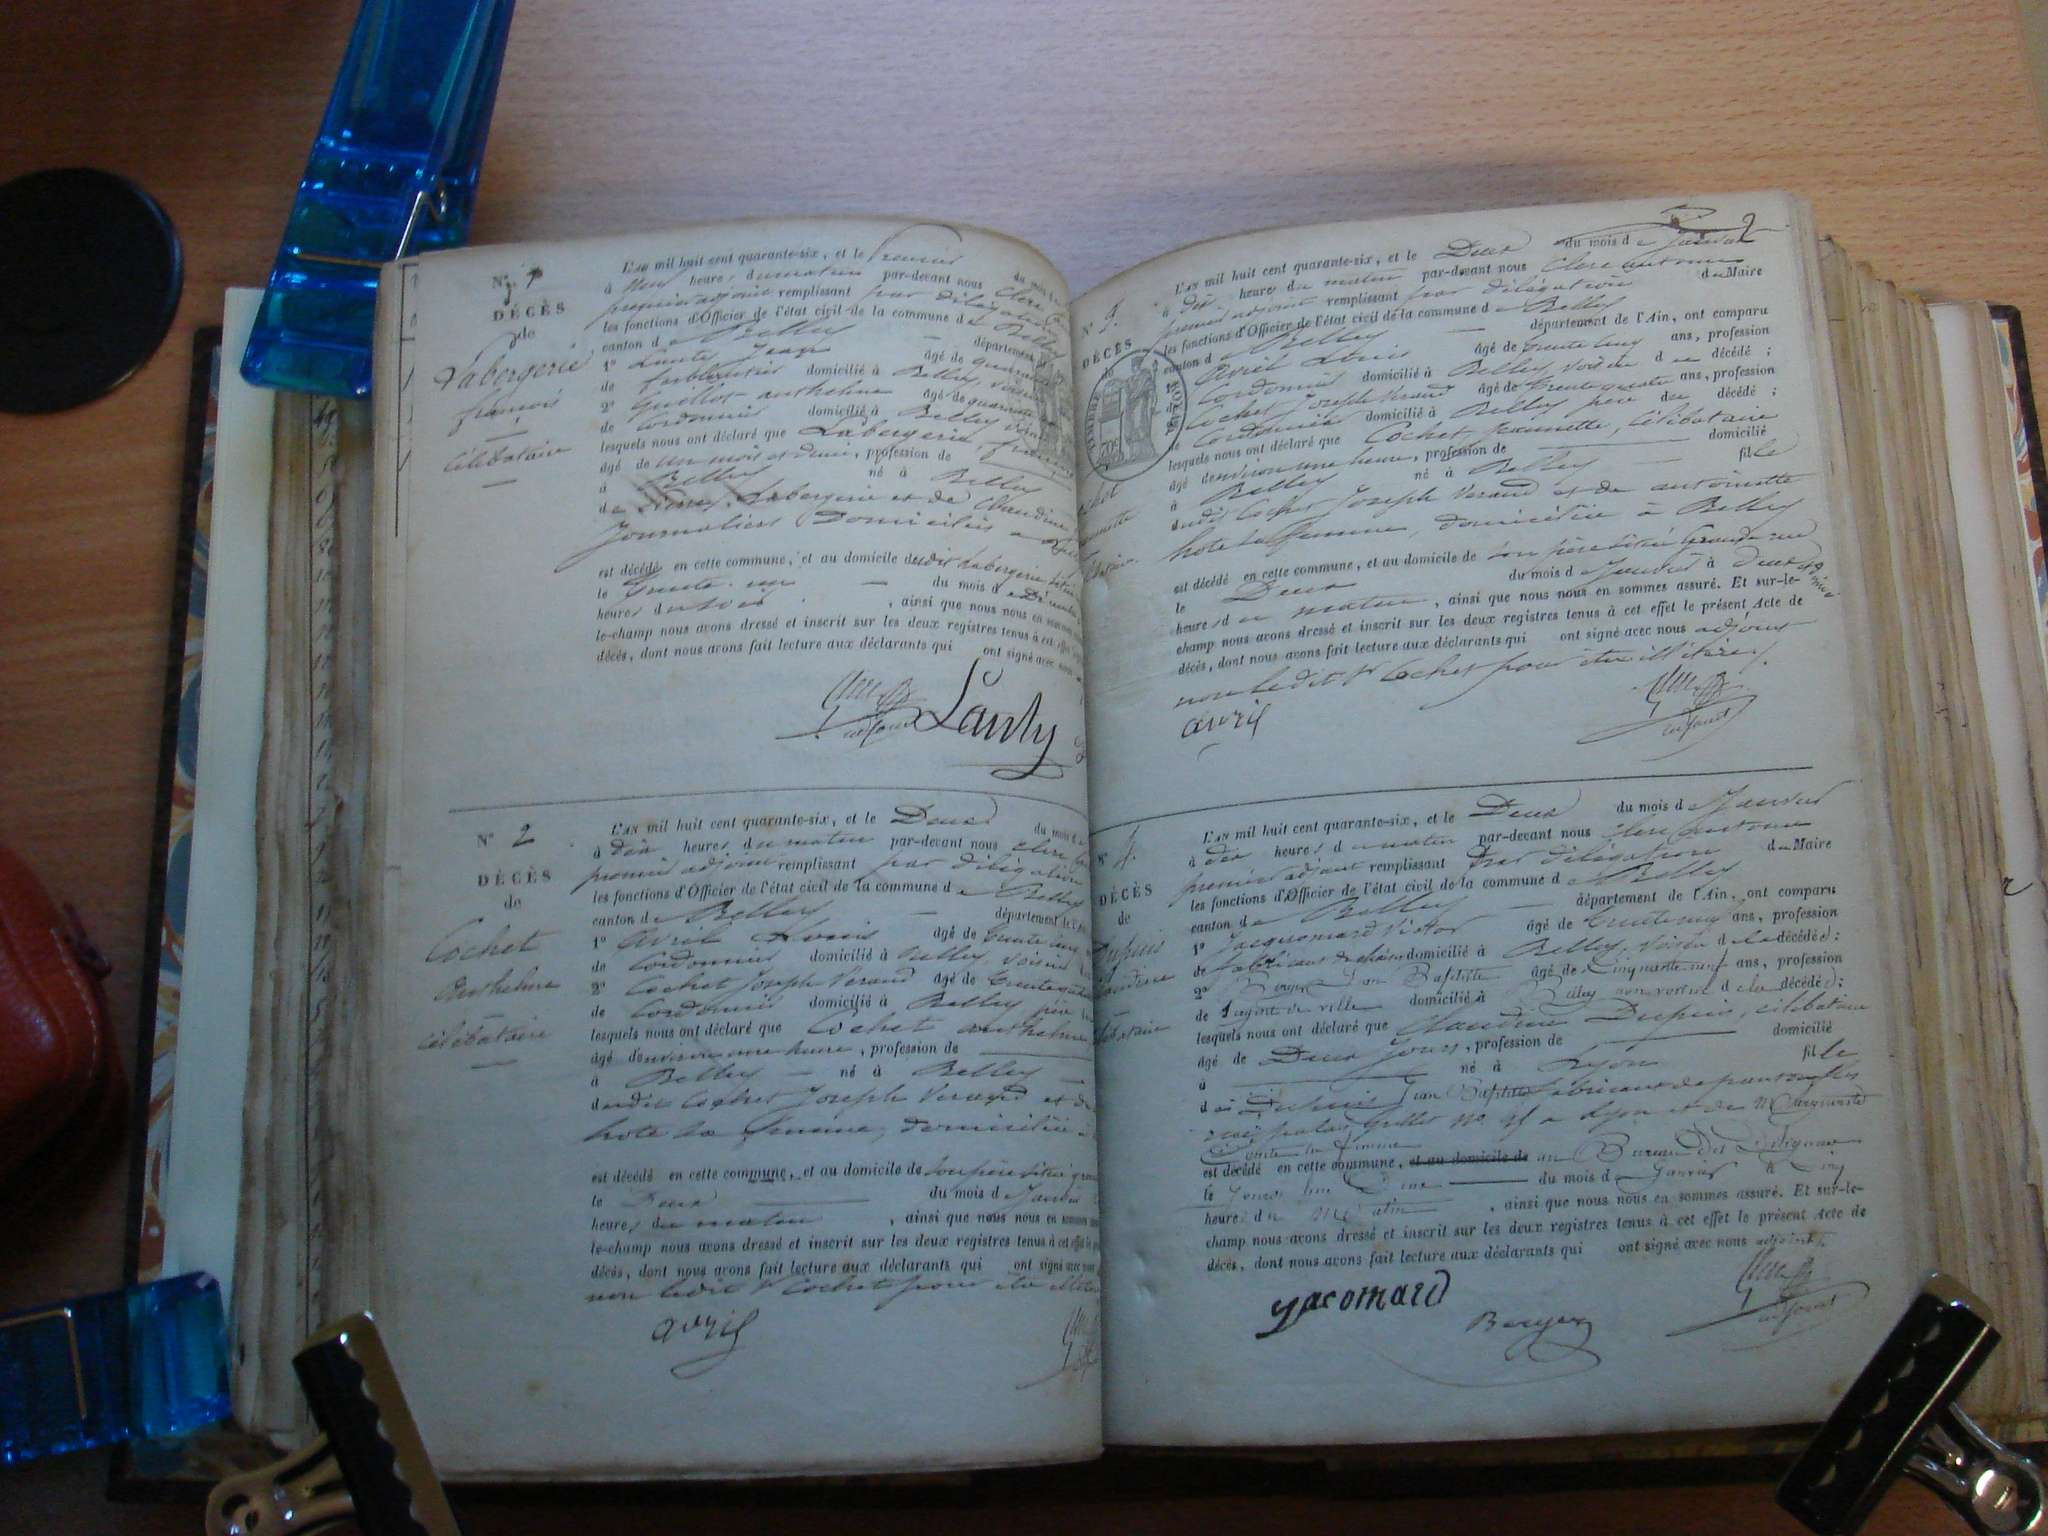 N° 1
DÉCÈS
de
Labergerie
françois
célibataire
L'AN mil huit cent quarante-six, et le Premier du mois d
à heures du matin par-devant nous Clerc
premier adjoint remplissant par délégation
les fonctions d'Officier de l'état civil de la commune de Belley
canton de Belley — département
1° Jean âgé de quarante
de ferblantier domicilié à Belley, voisin
2° Guillot anthelme âgé de quarante
de Cordonnier domicilié à Belley
lesquels nous ont déclaré que Labergerie
âgé de un mois et demi, profession de
à Belley né à Belley
de Labergerie et de Claudine
Journaliers Domiciliés à
est décédé en cette commune, et au domicile dudit Labergerie
le Trente-un — du mois de Décembre
heures du soir, ainsi que nous nous en sommes
le-champ nous avons dressé et inscrit sur les deux registres tenus à cet effet
décès, dont nous avons fait lecture aux déclarants qui ont signé avec
Lanty
N° 2
DÉCÈS
de
Cochet
Anthelme
célibataire
L'AN mil huit cent quarante-six, et le Deux du mois d
à dix heures du matin par-devant nous Clerc
premier adjoint remplissant par délégation
les fonctions d'Officier de l'état civil de la commune de Belley
canton de Belley — département de l'
1° Avril Louis âgé de trente cinq
de Cordonnier domicilié à Belley, voisin
2° Cochet Joseph Verand âgé de trente quatre
de Cordonnier domicilié à Belley père
lesquels nous ont déclaré que Cochet anthelme
âgé d'environ une heure, profession de
à Belley — né à Belley —
dudit Cochet Joseph Verand et de
hote sa femme, domiciliée à
est décédé en cette commune, et au domicile de son père situé
le Deux du mois de Janvier
heures du matin, ainsi que nous nous en sommes
le-champ nous avons dressé et inscrit sur les deux registres tenus à cet effet le
décès, dont nous avons fait lecture aux déclarants qui ont signé avec
non ledit Sr Cochet pour être
avril
2
N° 3.
DÉCÈS
de
TIMBRE ROYAL
L'AN mil huit cent quarante-six, et le Deux du mois de Janvier
à dix heures du matin par-devant nous Clerc antoine
premier adjoint remplissant par délégation du Maire
les fonctions d'Officier de l'état civil de la commune de Belley
canton de Belley — département de l'Ain, ont comparu
Avril Louis âgé de trente cinq ans, profession
Cordonnier domicilié à Belley, voisin du décédé ;
Cochet Joseph Verand âgé de trente quatre ans, profession
de Cordonnier domicilié à Belley père du décédé ;
lesquels nous ont déclaré que Cochet Jeannette, célibataire
âgé d'environ une heure, profession de domicilié
à Belley né à Belley — fille
dudit Cochet Joseph Verand et de antoinette
hote sa femme, domiciliée à Belley
est décédé en cette commune, et au domicile de son père situé Grande rue
le Deux du mois de Janvier à deux et demie
heures du matin, ainsi que nous nous en sommes assuré. Et sur-le-
champ nous avons dressé et inscrit sur les deux registres tenus à cet effet le présent Acte de
décès, dont nous avons fait lecture aux déclarants qui ont signé avec nous adjoint
non ledit Sr Cochet pour être illitéré.
avril
N° 4.
DÉCÈS
de
Dupuis
L'AN mil huit cent quarante-six, et le Deux du mois de Janvier
à dix heures du matin par-devant nous Clerc antoine
premier adjoint remplissant par délégation du Maire
les fonctions d'Officier de l'état civil de la commune de Belley
canton de Belley — département de l'Ain, ont comparu
1° Jacquomard Victor âgé de trente ans, profession
de fabricant de domicilié à Belley, voisin de la décédée ;
2° Berger Jean Baptiste âgé de Cinquante neuf ans, profession
de agent de ville domicilié à Belley non voisin de la décédée ;
lesquels nous ont déclaré que Claudine Dupuis, célibataire
âgé de Deux Jours, profession de domicilié
à né à Lyon fille
de Dupuis Jean Baptiste fabricant de
n° à Lyon et de
sa femme
est décédé en cette commune, et au domicile de au Bureau des Diligences
le du mois de Janvier à cinq
heures du matin, ainsi que nous nous en sommes assuré. Et sur-le-
champ nous avons dressé et inscrit sur les deux registres tenus à cet effet le présent Acte de
décès, dont nous avons fait lecture aux déclarants qui ont signé avec nous adjoint.
Jacomard
Berger